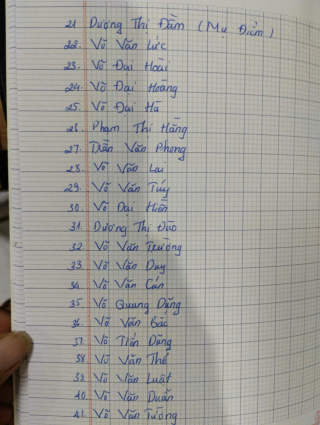 21. Dương Thị Đầm (Mụ Điểm)
22. Võ Văn Lức
23. Võ Đại Hoài
24. Võ Đại Hoàng
25. Võ Đại Hà
26. Phạm Thị Hằng
27. Trần Văn Phong
28. Võ Văn Lai
29. Võ Văn Túy
30. Võ Đại Hiền
31. Dương Thị Đào
32. Võ Văn Trường
33. Võ Văn Duy
34. Võ Văn Cán
35. Võ Quang Dũng
36. Võ Văn Bắc
37. Võ Tiến Dũng
38. Võ Văn Thế
39. Võ Văn Luật
40. Võ Văn Duẩn
41. Võ Văn Tương